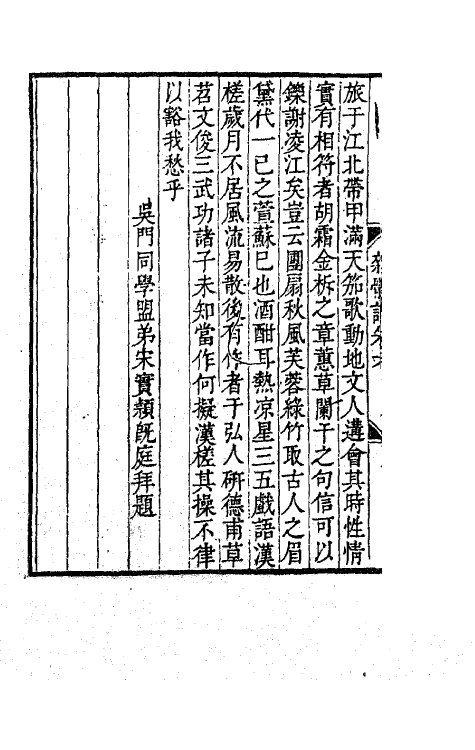 旅于江北帶甲滿天笳歌動地文人遘會其時性情
實有相符者胡霜金柝之章蕙草闌干之句信可以
鑠謝凌江矣豈云團扇秋風芙蓉綠竹取古人之眉
黛代一已之萱蘇已也酒酣耳熱凉星三五戲語漢
槎歲月不居風流易散後有作者于弘人硏德甫草
苕文俊三武功諸子未知當作何擬漢槎其操不律
以豁我愁乎
吳門同學盟弟宋實穎既庭拜題